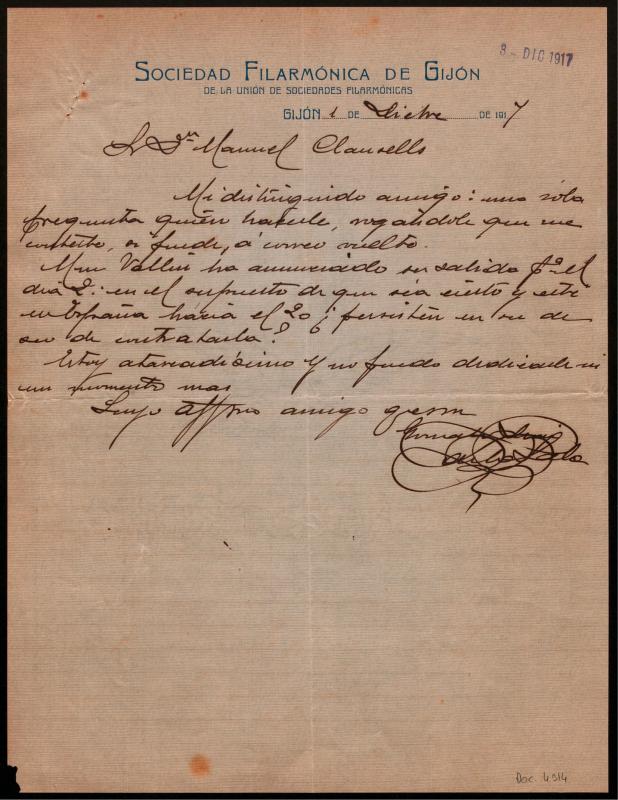 8- DIC 1917
SOCIEDAD FILARMÓNICA DE GIJÓN
DE LA UNIÓN DE SOCIEDADES FILARMÓNICAS
GIJÓN 1 DE Dicbre DE 1917
Sr Dn Manuel Clausells
Mi distinguido amigo: una sola
pregunta quiero hacerle, rogándole que me
conteste, si puede, á correo vuelto.
Mme Vallin ha anunciado su salida el
día 2: en el supuesto de que sea cierto y esté
en España hacia el 20 ¿persisten en su de
seo de contratarla?
Estoy atareadísimo y no puedo dedicarle ni
un momento mas
Suyo affmo amigo qesm
Doc. 4914